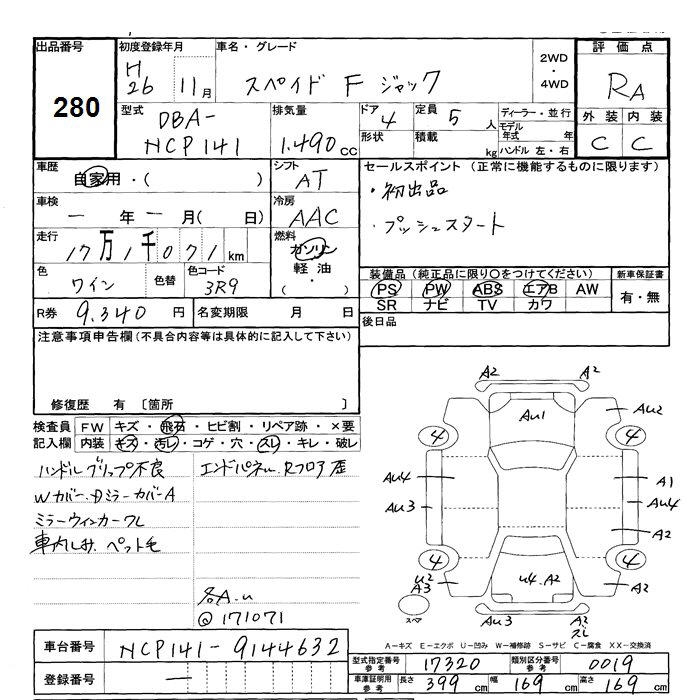 出品番号 初度登録年月 車名・グレード 2WD・4WD 評価点
280 H26 11月 スペイド F ジャック RA
型式 DBA-NCP141 排気量 1.490cc ドア 4 定員 5人 ディーラー・並行
形状 積載 kg モデル年式 年 ハンドル 左・右
外装 内装
C C
車歴 自家用・( ) シフト AT セールスポイント (正常に機能するものに限ります)
・初出品
車検 一年一月( 日) 冷房 AAC ・プッシュスタート
走行 17万1千071km 燃料 ガソリン 軽油 ・( )
色 ワイン 色替 色コード 3R9
装備品 (純正品に限り○をつけてください) 新車保証書
PS PW ABS エアB AW 有・無
SR ナビ TV カワ
R券 9.340円 名変期限 月 日 後日品
注意事項申告欄(不具合内容等は具体的に記入して下さい)
修復歴 有 〔箇所 〕
検査員 FW キズ・飛石・ヒビ割・リペア跡・×要
記入欄 内装 キズ・汚レ・コゲ・穴・スレ・キレ・破レ
ハンドルグリップ不良 エンドパネル、Rフロア歪
Wカバー・Dミラーカバー A
ミラーウィンカーワレ
車内しみ、ペット毛
各A.u
@171071
A2 A2
Au1 Au2
4 4
Au4 A1
Au3 Au4
A2
4 4
u2 A3 u4.A2 A2
スペア Au3 A2 ズレ
A-キズ E-エクボ U-凹み W-補修跡 S-サビ C-腐食 XX-交換済
車台番号 NCP141-9144632
型式指定番号 参考 17320 類別区分番号 参考 0019
登録番号 一
車庫証明用 参考 長さ 399cm 幅 169cm 高さ 169cm